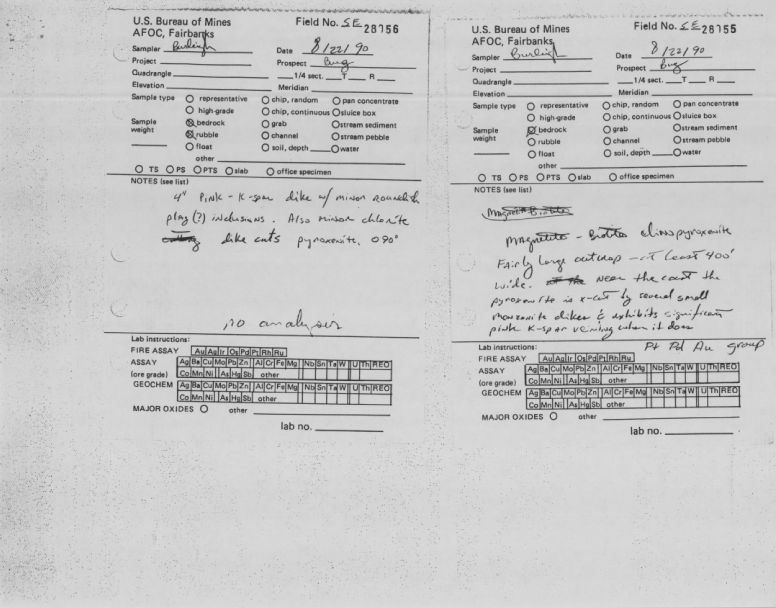 U.S. Bureau of Mines
AFOC, Fairbanks
Field No. SE 28156
Sampler Burleigh
Date 8/22/90
Project
Prospect Bug
Quadrangle
1/4 sect. T R
Elevation
Meridian
Sample type
representative
chip, random
pan concentrate
high-grade
chip, continuous
sluice box
Sample weight
bedrock
grab
stream sediment
rubble
channel
stream pebble
float
soil, depth
water
other
TS PS PTS slab office specimen
NOTES (see list)
4" Pink - K-spar dike w/ minor roundish
plag (?) inclusions. Also minor chlorite
dike cuts pyroxenite. 090°
no analysis
Lab instructions:
FIRE ASSAY Au Ag Ir Os Pd Pt Rh Ru
ASSAY Ag Ba Cu Mo Pb Zn Al Cr Fe Mg Nb Sn Ta W U Th REO
(ore grade) Co Mn Ni As Hg Sb other
GEOCHEM Ag Ba Cu Mo Pb Zn Al Cr Fe Mg Nb Sn Ta W U Th REO
Co Mn Ni As Hg Sb other
MAJOR OXIDES other
lab no.
U.S. Bureau of Mines
AFOC, Fairbanks
Field No. SE 28155
Sampler Burleigh
Date 8/22/90
Project
Prospect Bug
Quadrangle
1/4 sect. T R
Elevation
Meridian
Sample type
representative
chip, random
pan concentrate
high-grade
chip, continuous
sluice box
Sample weight
bedrock
grab
stream sediment
rubble
channel
stream pebble
float
soil, depth
water
other
TS PS PTS slab office specimen
NOTES (see list)
Magnetite Biotite
Magnetite - Biotite clinopyroxenite
Fairly large outcrop - at least 400'
wide. Near the coast the
pyroxenite is x-cut by several small
monzonite dikes & exhibits significant
pink K-spar veining when it does
Pt Pd Au group
Lab instructions:
FIRE ASSAY Au Ag Ir Os Pd Pt Rh Ru
ASSAY Ag Ba Cu Mo Pb Zn Al Cr Fe Mg Nb Sn Ta W U Th REO
(ore grade) Co Mn Ni As Hg Sb other
GEOCHEM Ag Ba Cu Mo Pb Zn Al Cr Fe Mg Nb Sn Ta W U Th REO
Co Mn Ni As Hg Sb other
MAJOR OXIDES other
lab no.